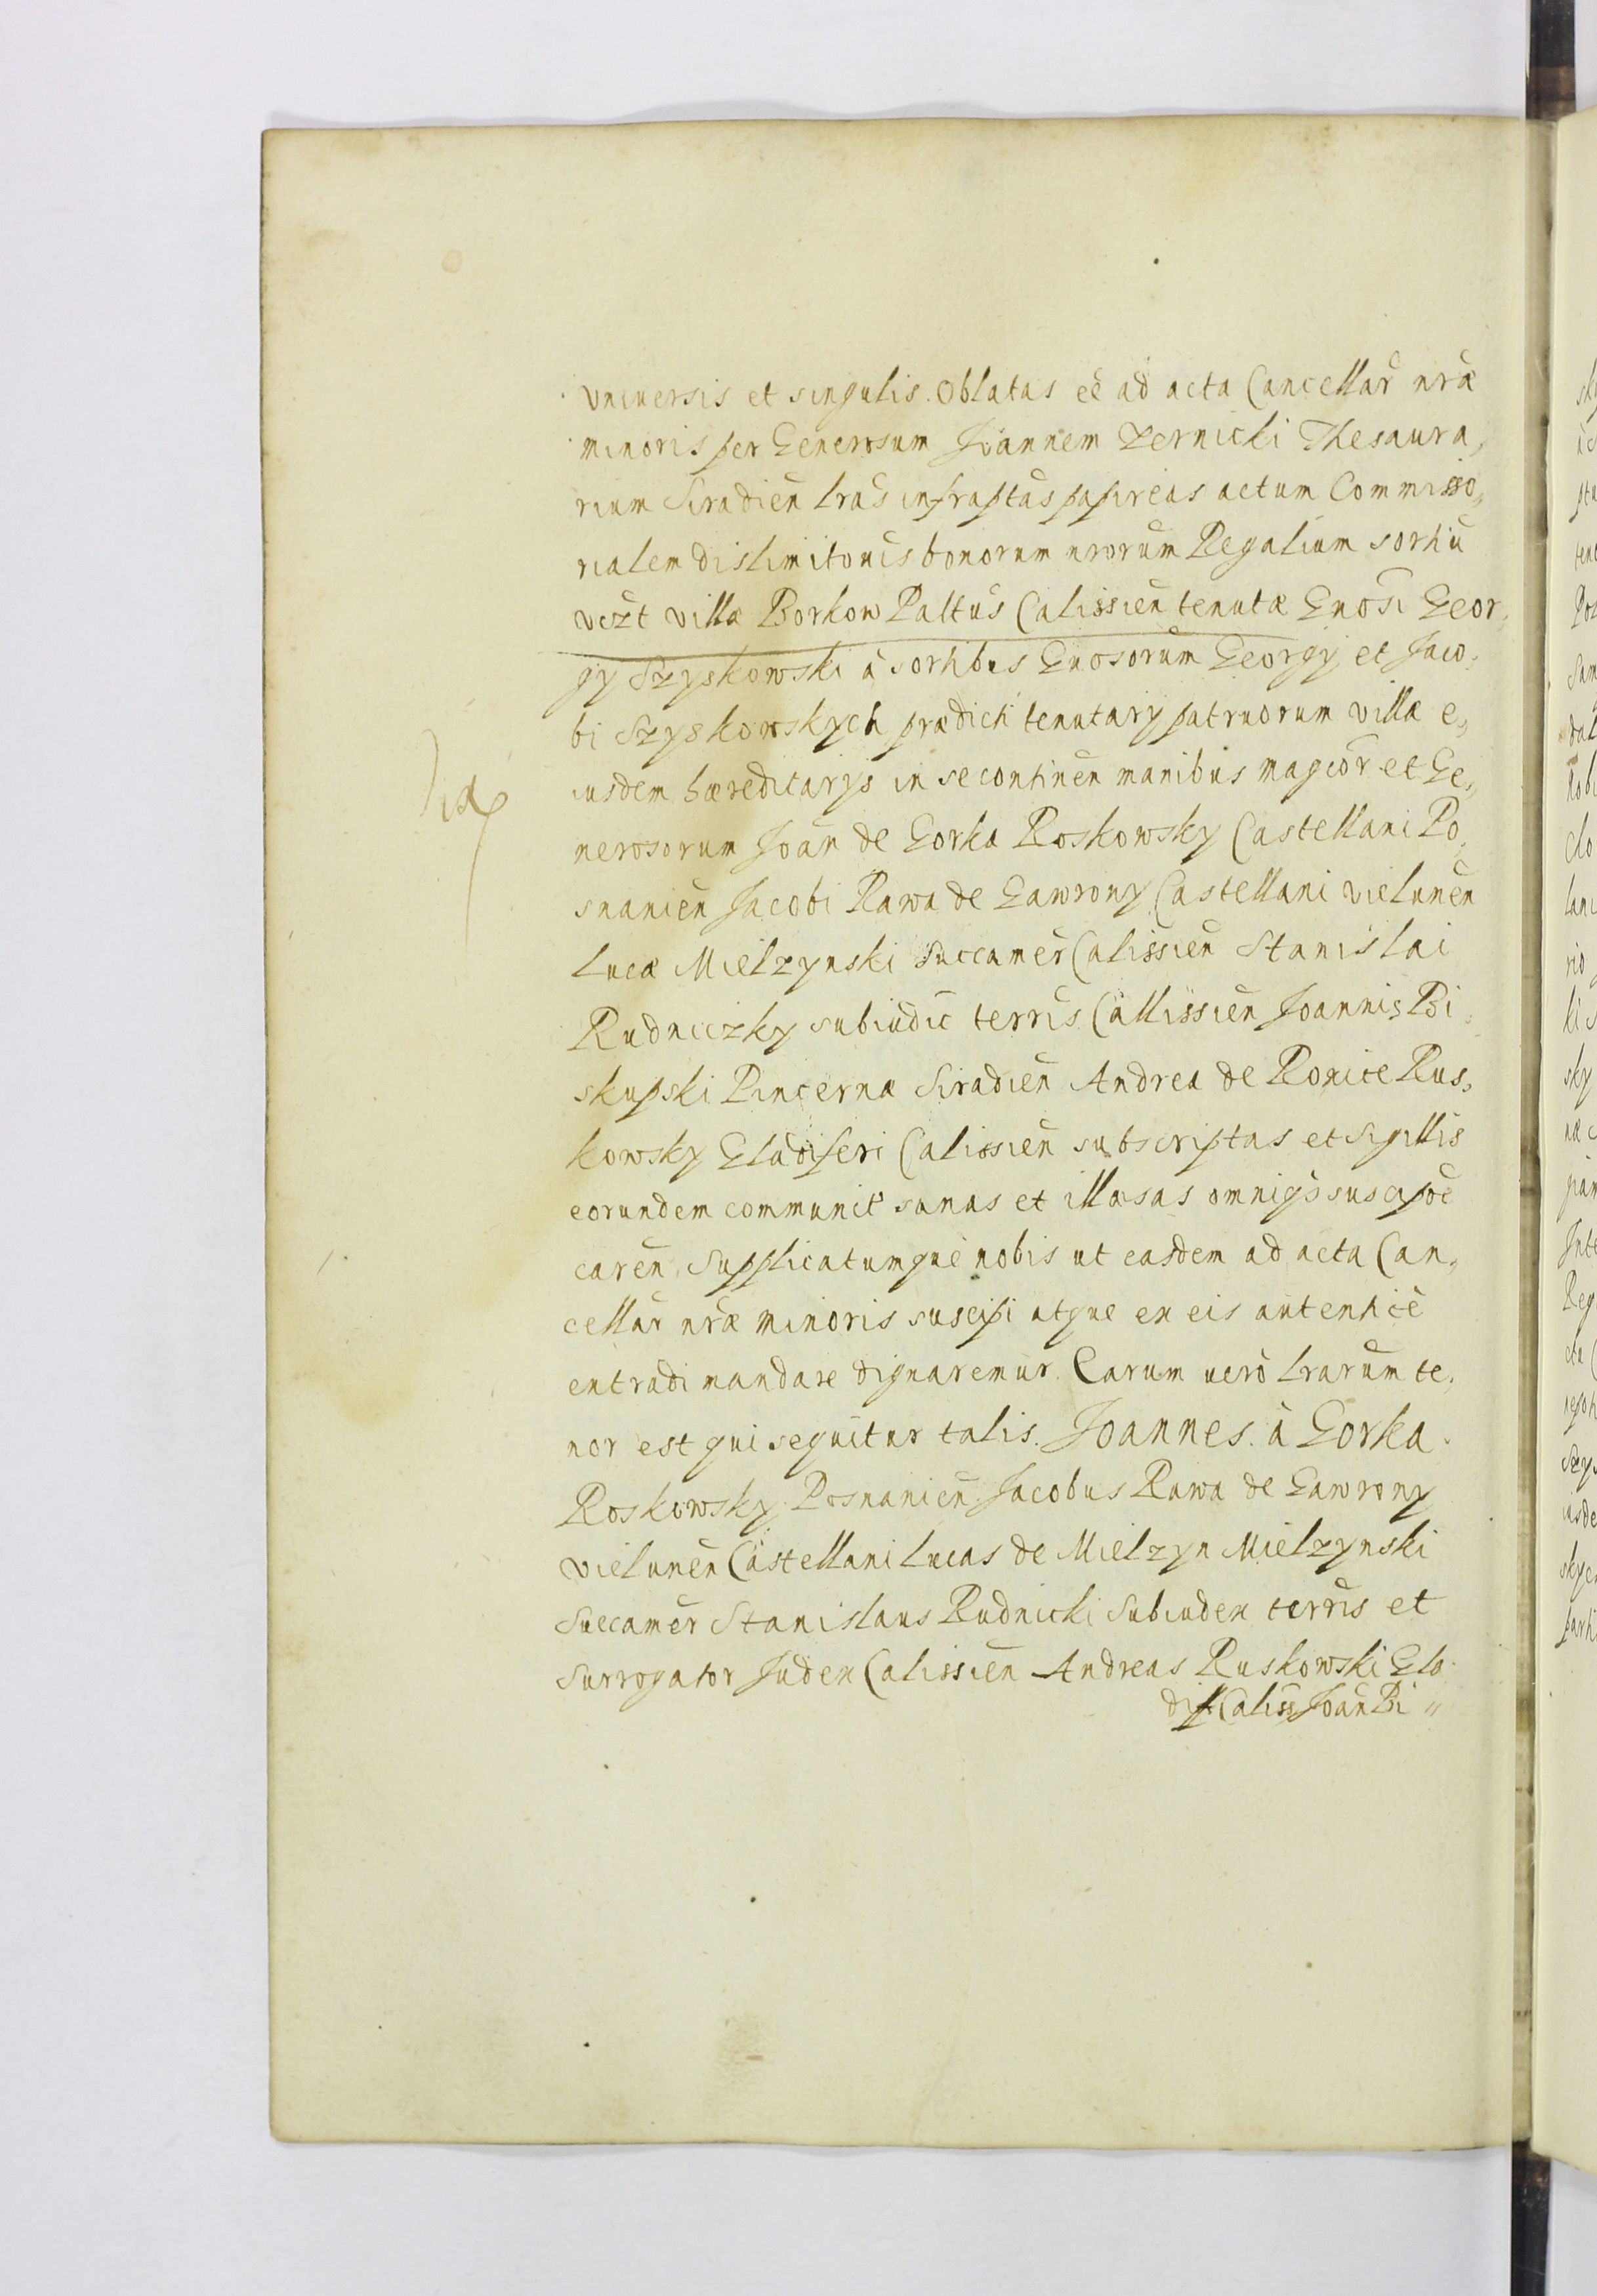 vniuersis et singulis. Oblatas eē ad acta Cancellar̄ nr̄æ
minoris per Generosum Joannem Zernicki Thesaura,
rium Siradien̄ lrās infraptās papireas actum Commisso,
rialem dislimitonis bonorum nrorum Regalium sortiū
vczt villæ Borkow Paltus Calissien̄ tenutæ Gnosi Geor,
gy Szyskowski à sortibus Gnosorum Georgy et Jaco,
bi Szyskowskych prædicti tenutary patruorum villæ e,
iusdem hæreditarys in se continen̄ manibus magcor̄ et Ge,
nerosorum Joan̄ de Gorka Roskowsky Castellani Po,
snanien̄ Jacobi Rawa de Gawrony Castellani vielunen̄
Lucæ Mielzynski Succamer̄ Calissien̄ Stanislai
Rudniczky subiudic̄ terris̄ Callissien̄ Joannis Bi,
skupski Pincernæ Siradien̄ Andrea de Romice Rus,
kowsky Gladiferi Calissien̄ subscriptas et sigillis
eorundem communit̄ sanas et illæsas omniq̄ suscipōe
caren̄, Supplicatumque nobis ut easdem ad acta Can,
cellar̄ nr̄æ minoris suscipi atque ex eis autenticē
extradi mandare dignaremur. Earum uerò lrarum te,
nor est qui sequitur talis. Joannes. à Gorka.
Roskowsky. Posnanien̄. Jacobus Rawa de Gawrony
vielunen̄ Castellani Lucas de Mielzyn Mielzynski
Succamer̄ Stanislaus Rudnicki Subiudex terris̄ et
Surrogator Judex Calissien̄ Andreas Ruskowski Gla
dif. Caliss̄ Joan̄ Bi,,